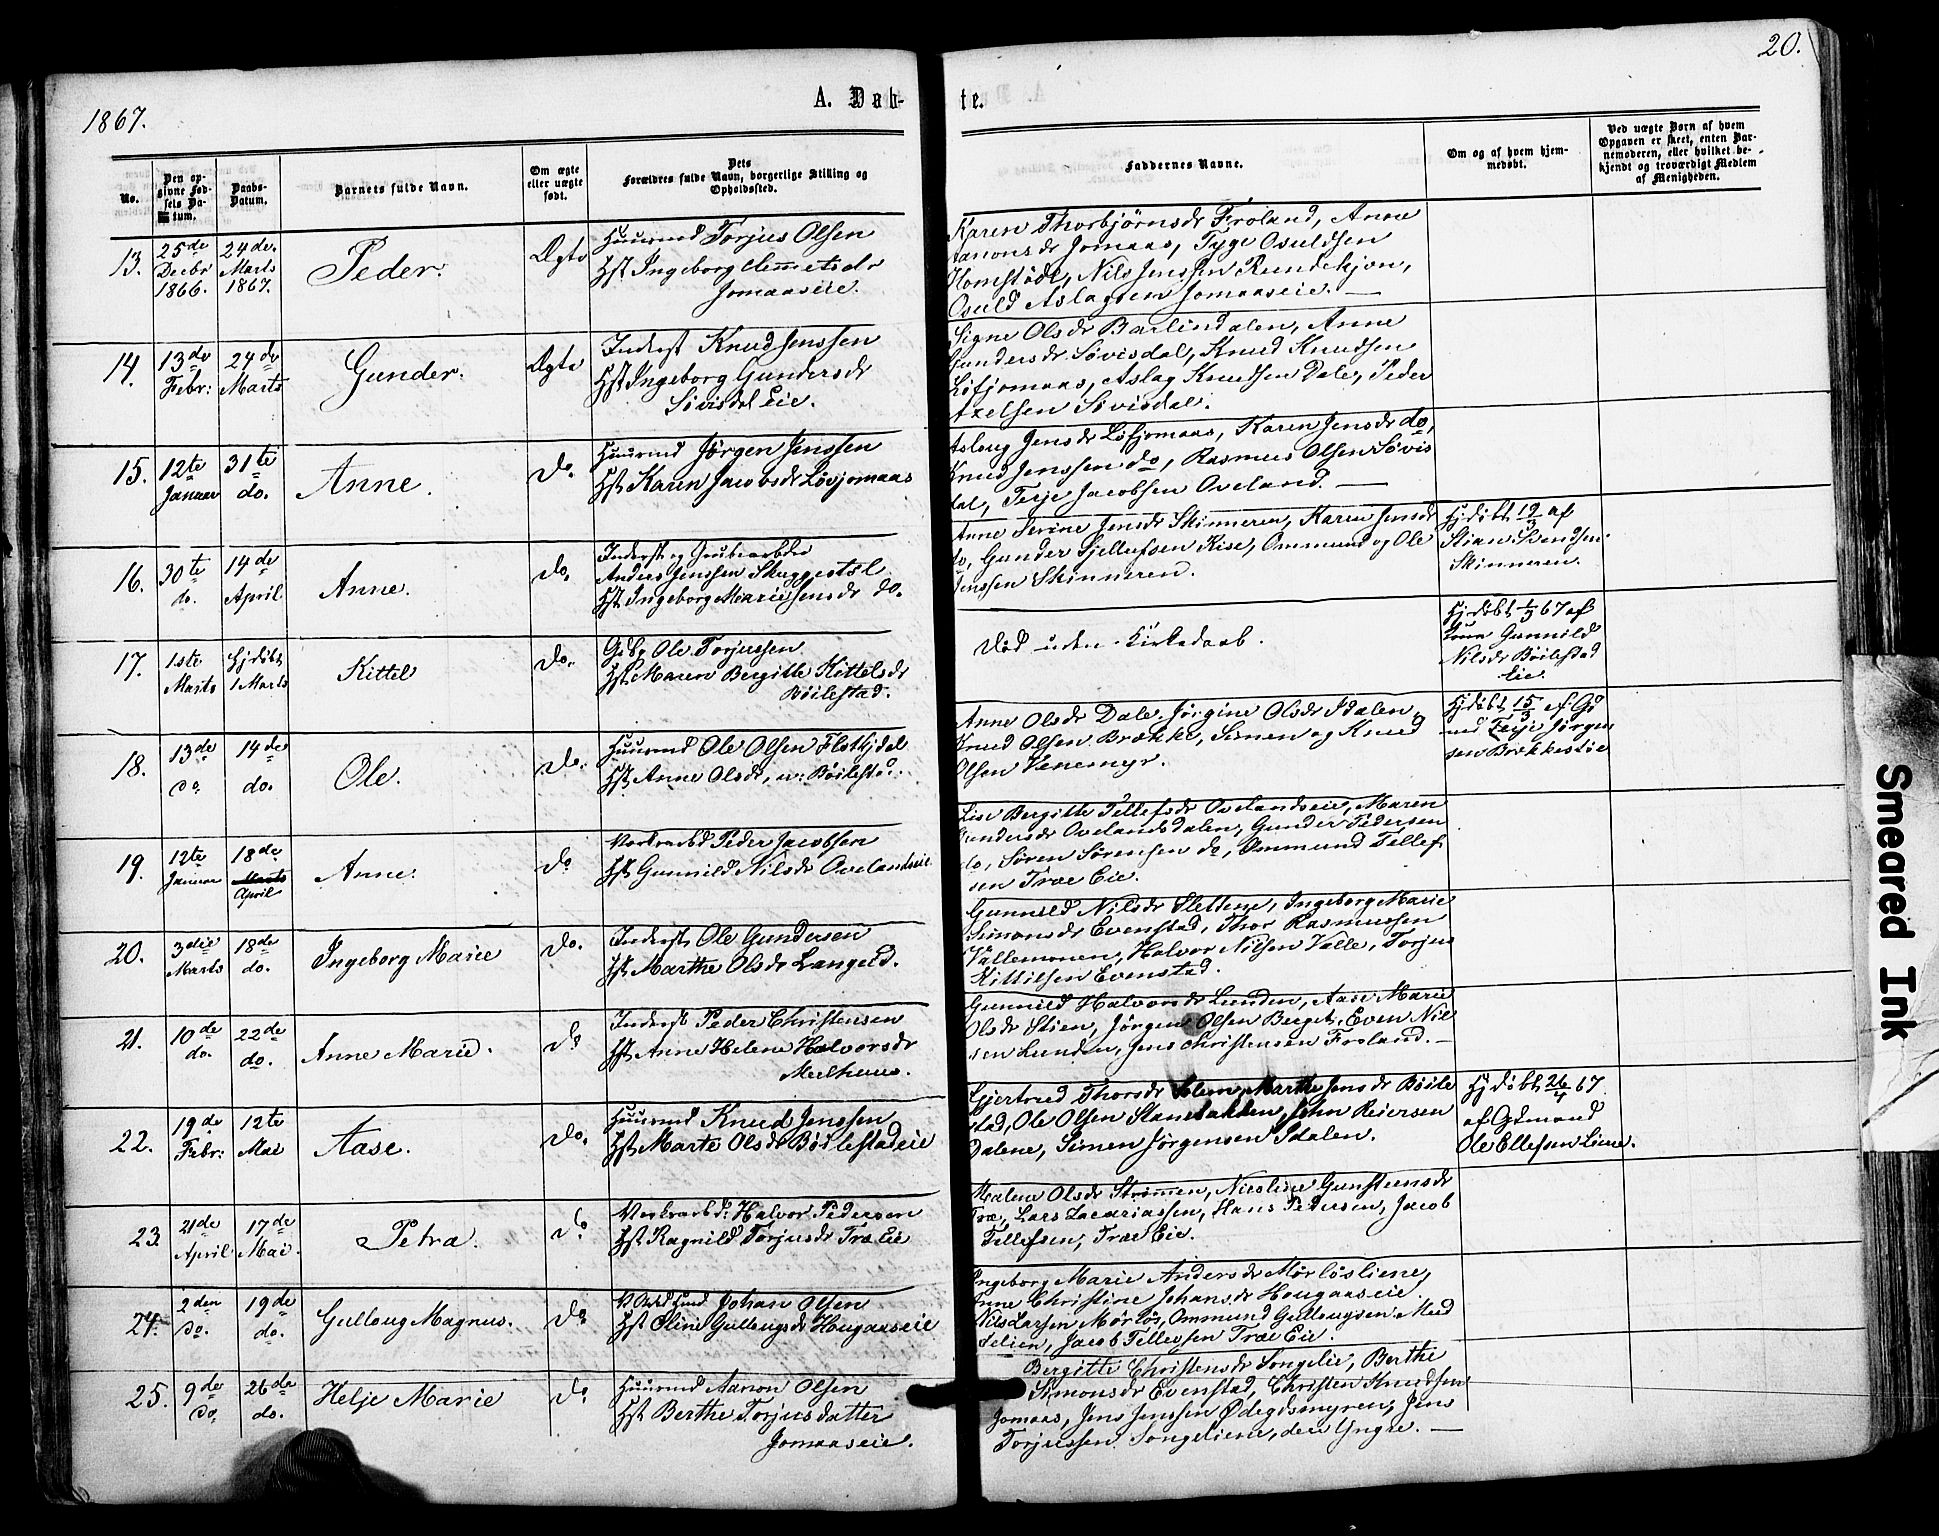 20.
1867.
A. Døb-
te.
No.
Den op-
givne Fød-
sels Da-
tum.
Daabs-
Datum.
Barnets fulde Navn.
Om ægte
eller uægte
født.
Dets
Forældres fulde Navn, borgerlige Stilling og
Opholdssted.
Faddernes Navne.
Om og af hvem hjem-
medøbt.
Ved uægte Børn af hvem
Opgaven er skeet, enten Bar-
nemoderen, eller hvilket be-
kjendt og troværdigt Medlem
af Menigheden.
13.
25de
Decbr
1866.
24de.
Marts
1867.
Peder.
Ægte
Huusmd Torjus Olsen
Hst Ingeborg Clemetsdr
Jomaaseie.
Karen Thorbjørnsdr Froland, Anne
Aanonsdr Jomaas, Tyge Osuldsen
Homstøl, Nils Jenssen Rundekjøn,
Osuld Aslagsen Jomaaseie.
14.
13de
Febr:
24de
Marts
Gunder.
Ægte
Inderst Knud Jenssen
Hst Ingeborg Gundersdr
Søvisdal Eie.
Signe Olsdr Barlindalen, Anne
Gundersdr Søvisdal, Knud Knudsen
Løfjomaas, Aslag Knudsen Dale, Peder
Axelsen Søvisdal.
15.
12te
Januar
31te
do.
Anne.
Do.
Huusmd Jørgen Jenssen
Hst Karen Jacobsdr Løvjomaas
Aslaug Jensdr Løfjomaas, Karen Jensdr do,
Knud Jenssen do, Rasmus Olsen Søvis
dal, Terje Jacobsen Oveland.
16.
30te
do.
14de
April
Anne.
Do.
Inderst og Grubearbdr
Anders Jenssen
Hst Ingeborg Marie Jensdr do.
Anne Serine Jensdr Skinneren, Karen Jensdr
do, Gunder Tjellefsen Rise, Ommund og Ole
Jenssen Skinneren.
Hjdøbt 19/3 af
Stian Svendsen
Skinneren.
17.
1ste
Marts
Hjdøbt
1 Marts
Kittel
Do.
Gdbr Ole Torjussen
Hst Maren Bergitte Kittelsdr
Bøilestad.
Død uden Kirkedaab.
Hjdøbt 1/3 67 af
Gunnild
Nilsdr Bøilestad
Eie.
18.
13de
do.
14de
do.
Ole.
Do.
Huusmd Ole Olsen
Hst Anne Olsdr,
Anne Olsdr Dale, Jørgine Olsdr Idalen,
Knud Olsen Brække, Simen og Knud
Olsen Venemyr.
Hjdøbt 15/3 af Gd
md Terje Jørgen
sen Brækkestøe
19.
12te
Januar
18de
Marts
April
Anne.
Do
Verksarbd Peder Jacobsen
Hst Gunnild Nilsdr Ovelandseie
Lise Bergitte Tellefsdr Ovelandseie, Maren
Gundersdr Ovelandsdalen, Gunder Pedersen
do, Søren Sørensen do, Ommund Tellef
sen Træ Eie.
20.
3die
Marts
18de
do.
Ingeborg Marie
Do.
Inderst Ole Gundersen
Hst Marthe Olsdr Langeid.
Gunnild Nilsdr Slettene, Ingeborg Marie
Simonsdr Evenstad, Thor Rasmussen
Vallemonen, Halvor Nilsen Valle, Torjus
Kittilsen Evenstad.
21.
10de
do.
22de
do.
Anne Marie.
Do
Inderst Peder Christensen
Hst Anne Helene Halvorsdr
Mælhuus.
Gunnild Halvorsdr Lunden, Aase Marie
Olsdr Stien, Jørgen Olsen Berget, Even Nil
sen Lunden, Jens Christensen Froland.
22.
19de
Febr:
12te
Mai
Aase.
Do.
Huusmd Knud Jenssen
Hst Marte Olsdr Bøilestadeie
Gjertrud Thorsdr Solem, Marthe Jensdr Bøile
stad, Ole Olsen, John Reiersen
Dalene, Simen Jørgensen Idalen.
Hjdøbt 26/4 67
af Gdmand
Ole Ellefsen Liene.
23.
21de
April
17de
Mai.
Petra.
Do
Verksarbd: Halvor Pedersen
Hst Ragnild Torjusdr Træ Eie
Malene Olsdr Strømen, Nicoline Gunsteensdr
Træ, Lars Zacariassen, Hans Pedersen, Jacob
Tellefsen, Træ Eie.
24.
2den
do.
19de
do.
Gulloug Magnus.
Do
Johan Olsen
Hst Oline Gullougsdr Hougaaseie
Ingeborg Marie Andersdr Mørløsliene,
Anne Christine Johansdr Hougaaseie.
Nils Larsen Mørløs, Ommund Gullougsen Mød
felien, Jacob Tellefsen Træ Eie.
25.
9de
do.
26de
do.
Helje Marie
Do
Huusmd Aanon Olsen
Hst Berthe Torjusdatter
Jomaaseie.
Bergitte Christensdr Songelie, Berthe
Simonsdr Evenstad, Christen Knudsen
Jomaas, Jens Jenssen Ødegdsmyren, Jens
Torjussen Songeliene, den Yngre.
Smeared Ink